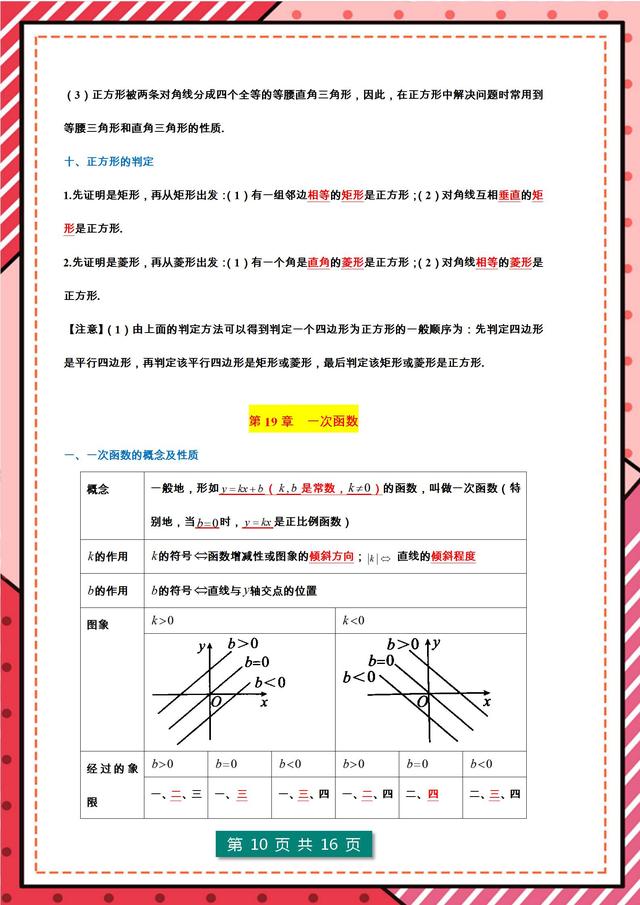 （3）正方形被两条对角线分成四个全等的等腰直角三角形，因此，在正方形中解决问题时常用到
等腰三角形和直角三角形的性质.
十、正方形的判定
1.先证明是矩形，再从矩形出发：（1）有一组邻边相等的矩形是正方形；（2）对角线互相垂直的矩
形是正方形.
2.先证明是菱形，再从菱形出发：（1）有一个角是直角的菱形是正方形；（2）对角线相等的菱形是
正方形.
【注意】（1）由上面的判定方法可以得到判定一个四边形为正方形的一般顺序为：先判定四边形
是平行四边形，再判定该平行四边形是矩形或菱形，最后判定该矩形或菱形是正方形.
第 19 章 一次函数
一、一次函数的概念及性质
概念 一般地，形如 y=kx+b（k,b 是常数，k≠0）的函数，叫做一次函数（特
别地，当 b=0 时，y=kx 是正比例函数）
k 的作用 k 的符号⇔函数增减性或图象的倾斜方向；|k|⇔ 直线的倾斜程度
b 的作用 b 的符号⇔直线与 y 轴交点的位置
图象 k>0 k<0
y b>0 b=0 b<0 O x
b>0 y b=0 b<0 O x
经过的象限 b>0 b=0 b<0 b>0 b=0 b<0
一、二、三 一、三 一、三、四 一、二、四 二、四 二、三、四
第 10 页 共 16 页